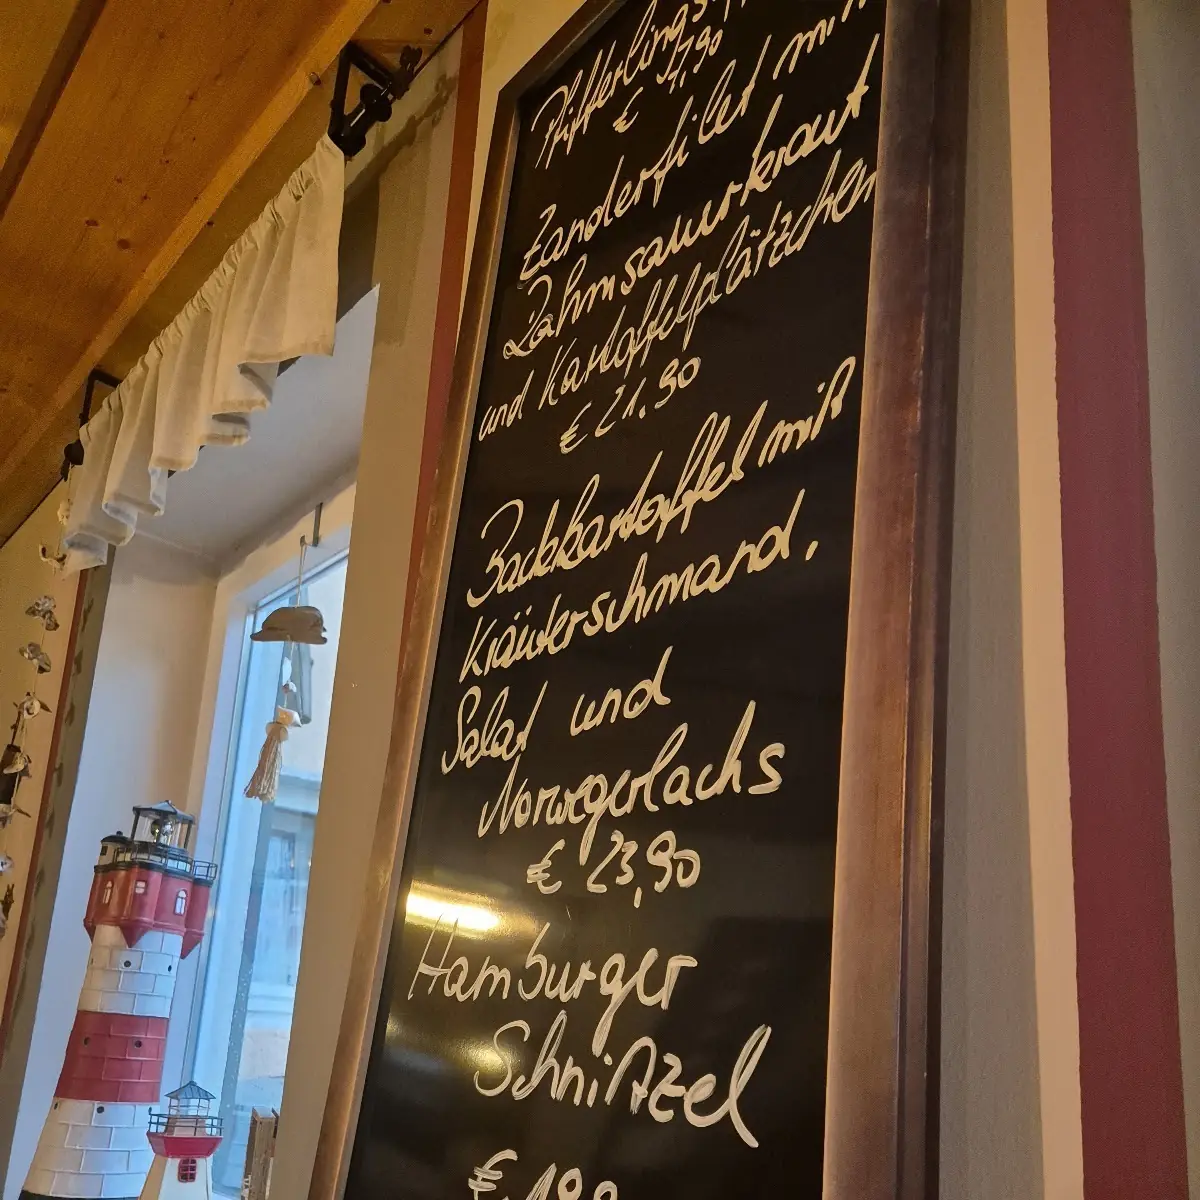 Pfifferlings
€ 7,90
Zanderfilet mit
Rahmsauerkraut
und Kartoffelplätzchen
€ 21,90
Backkartoffel mit
Kräuterschmand,
Salat und
Norwegerlachs
€ 23,90
Hamburger
Schnitzel
€